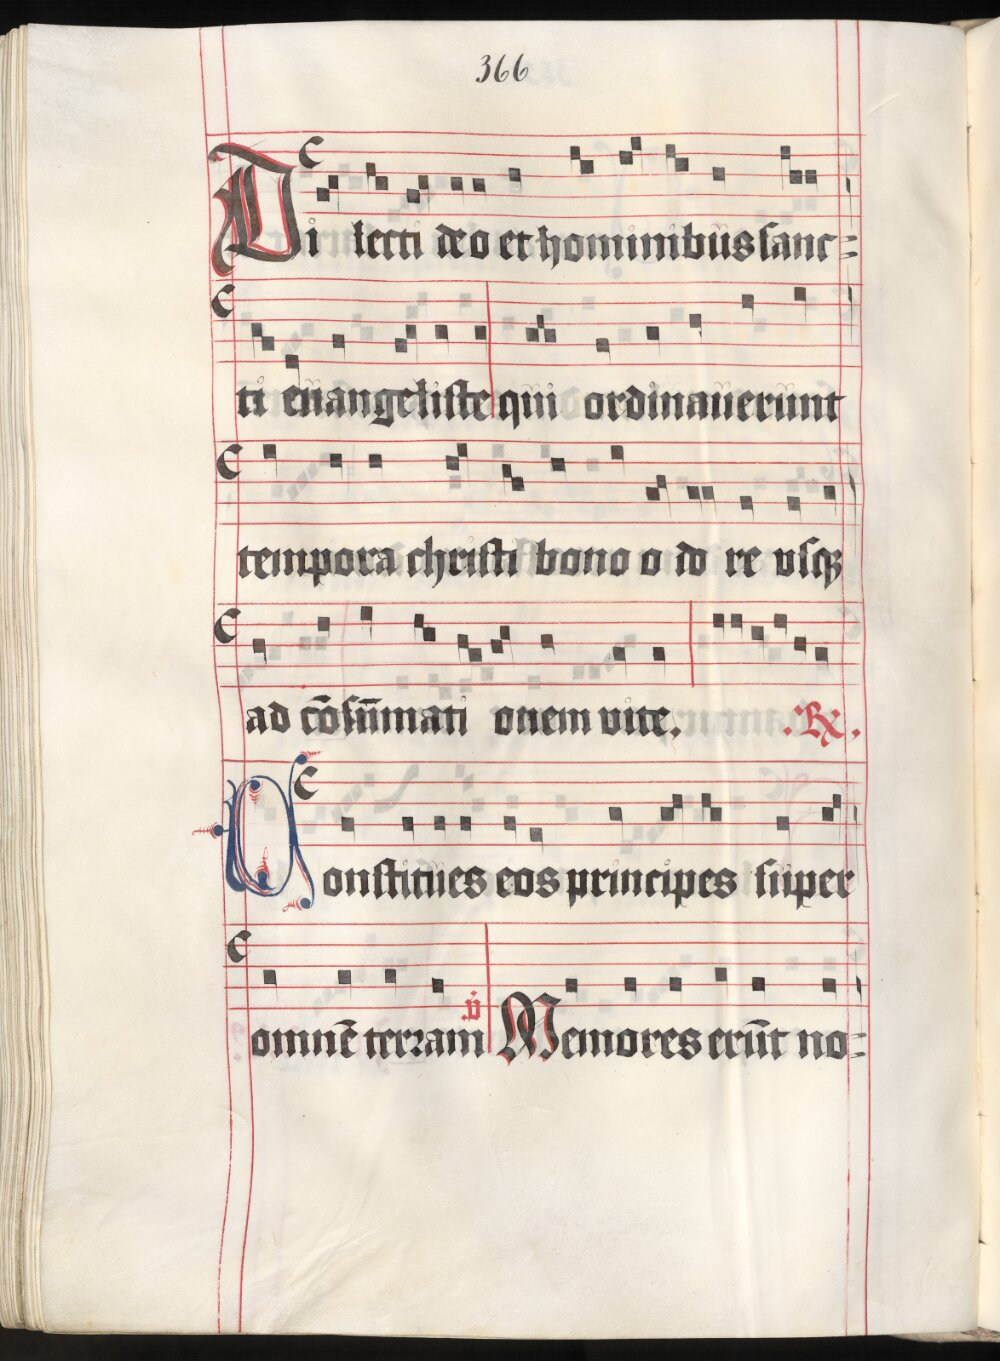 366
Di lecti deo et hominibus sanc=
ti euangeliste qui ordinauerunt
tempora christi bono o id re vsqꝫ
ad cōsūmati onem vite. .℟.
Constitues eos principes super
omnē terram .℣ Memores erūt no=